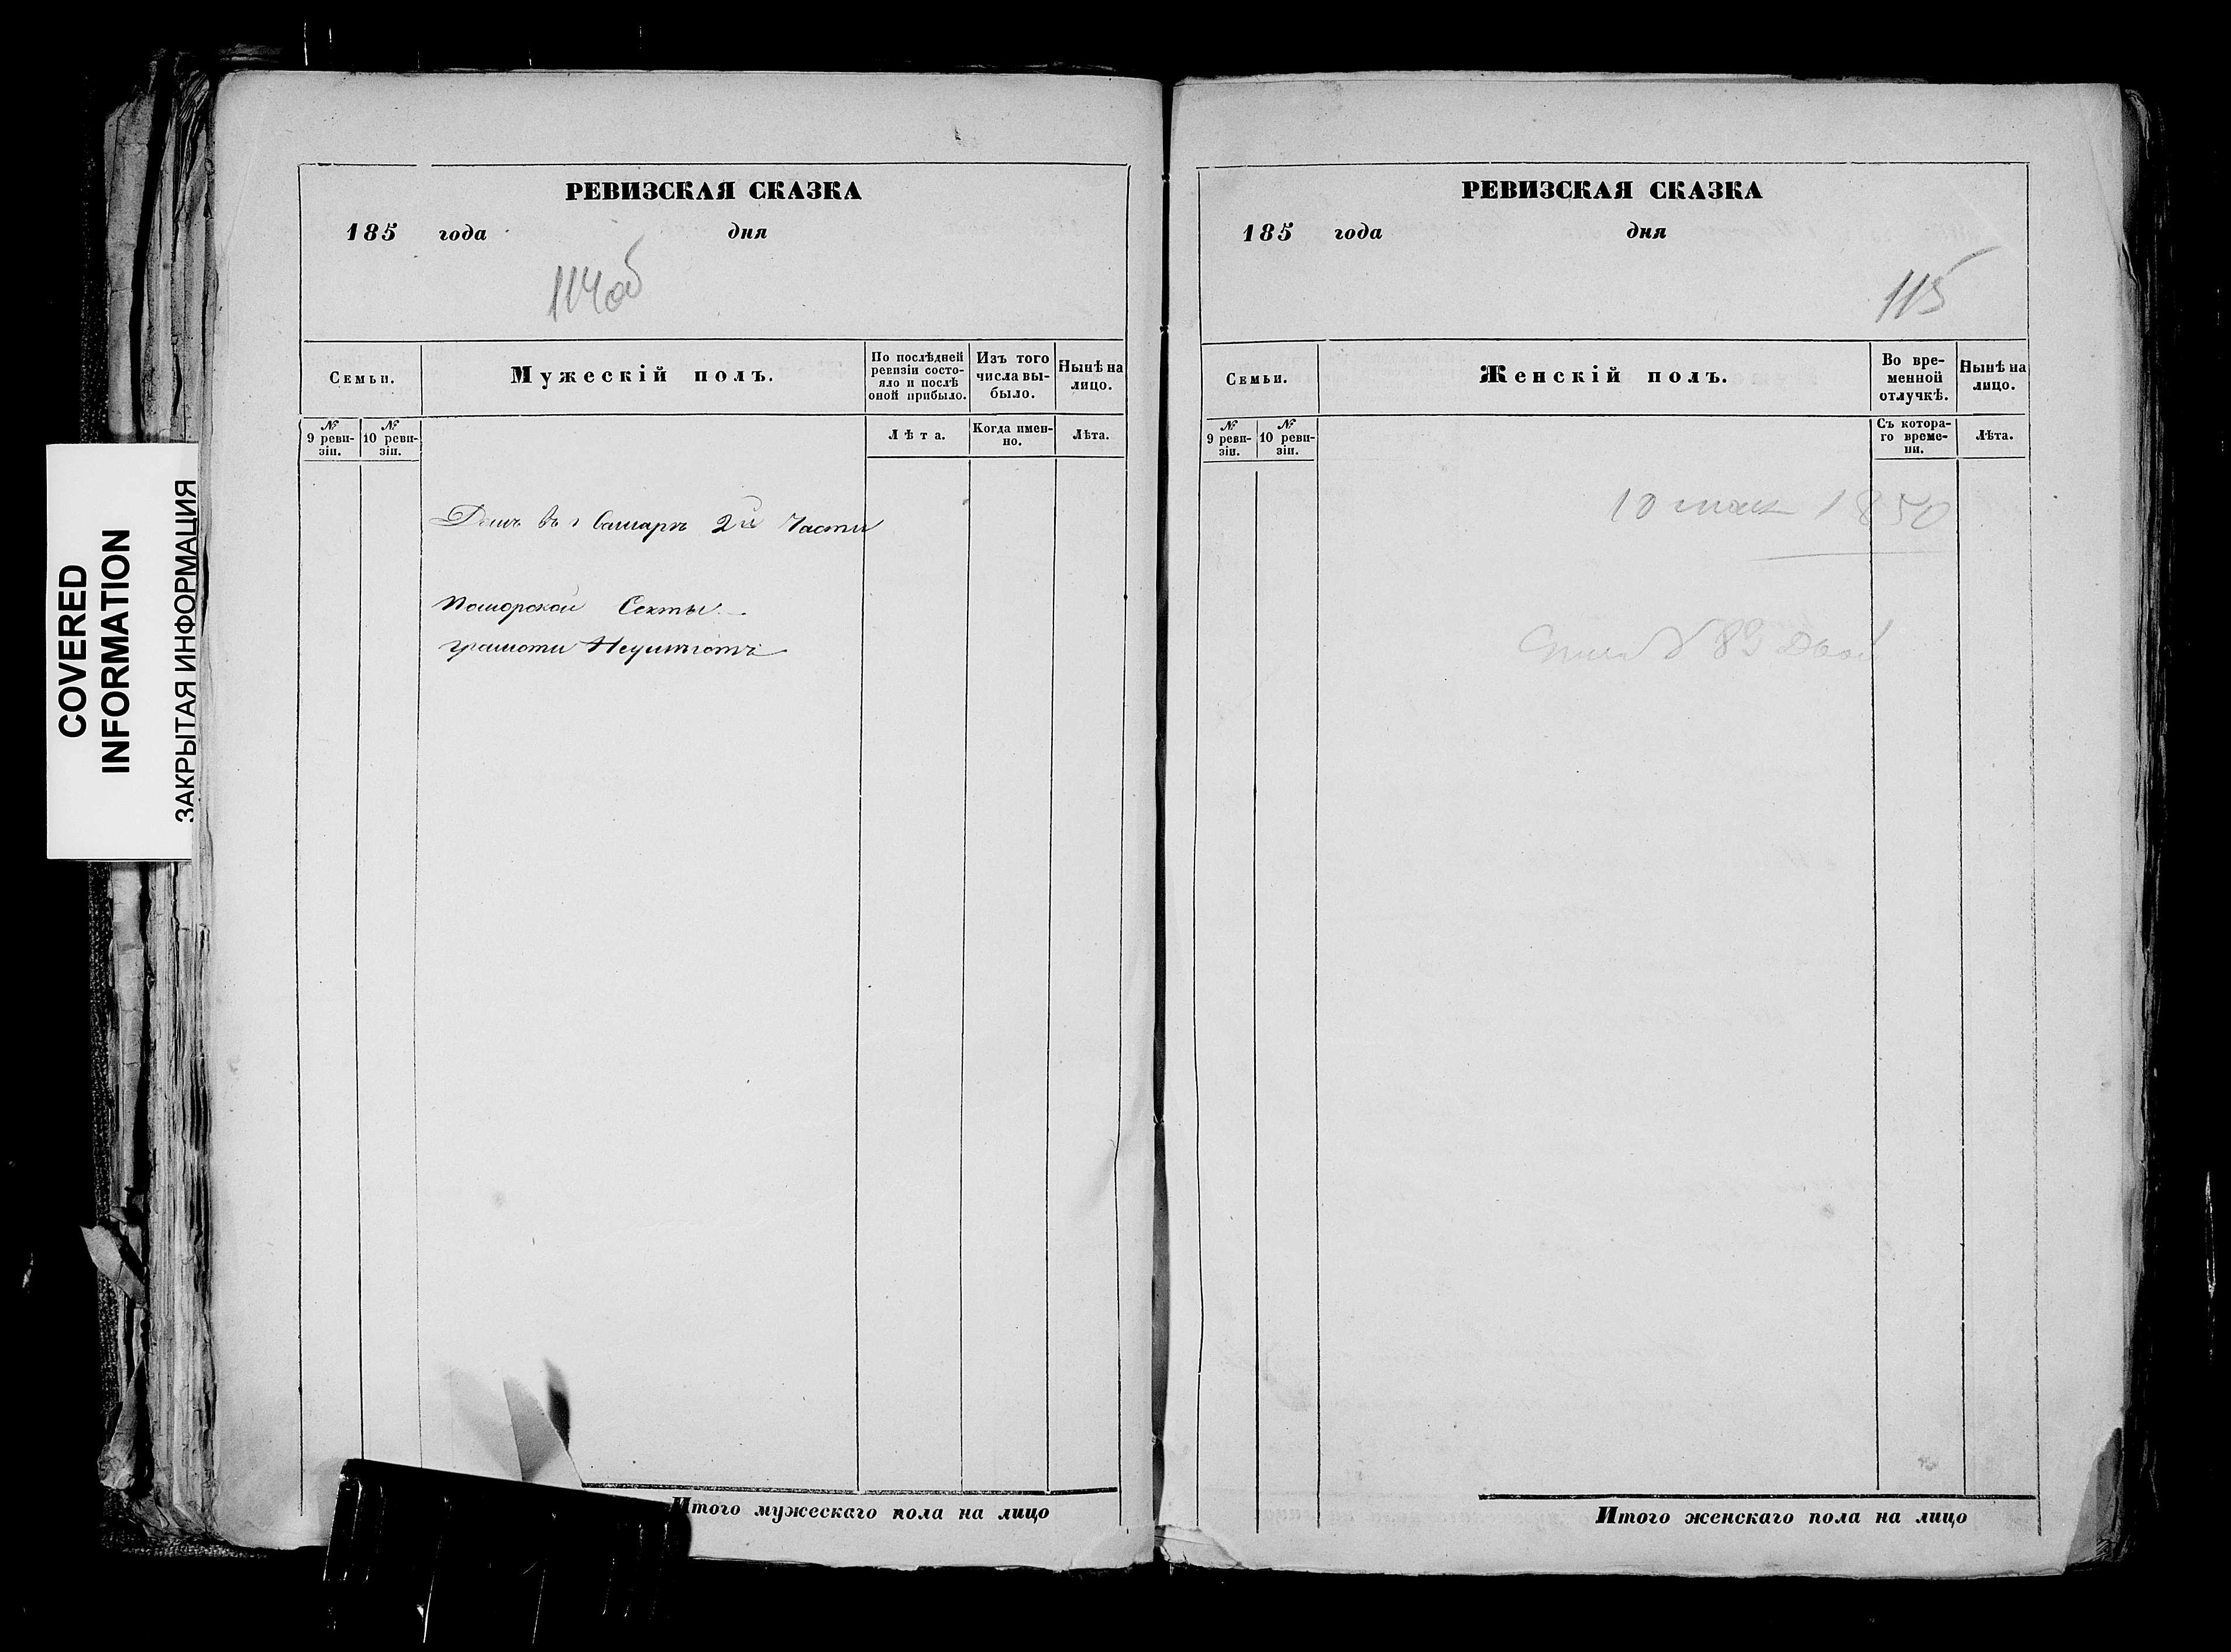 COVERED
INFORMATION
ЗАКРЫТАЯ ИНФОРМАЦИЯ
РЕВИЗСКАЯ СКАЗКА
185 года дня
114об
Семьи.
Мужескій полъ.
По послѣдней
ревизіи состо-
яло и послѣ
оной прибыло.
Изъ того
числа вы-
было.
Нынѣ на
лицо.
№
9 реви-
зіи.
№
10 реви-
зіи.
Лѣта.
Когда имен-
но.
Лѣта.
Домъ въ г Самарѣ 2й Части
Поморской Секты.
грамоти Неумѣютъ
Итого мужескаго пола на лицо
РЕВИЗСКАЯ СКАЗКА
185 года дня
115
Семьи.
Женскій полъ.
Во вре-
менной
отлучкѣ.
Нынѣ на
лицо.
№
9 реви-
зіи.
№
10 реви-
зіи.
Съ котора-
го време-
ни.
Лѣта.
10 мая 1850
№ 89
Итого женскаго пола на лицо